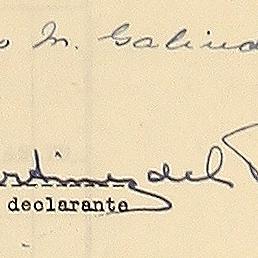 o M. Galind
rdinez del
deolarante